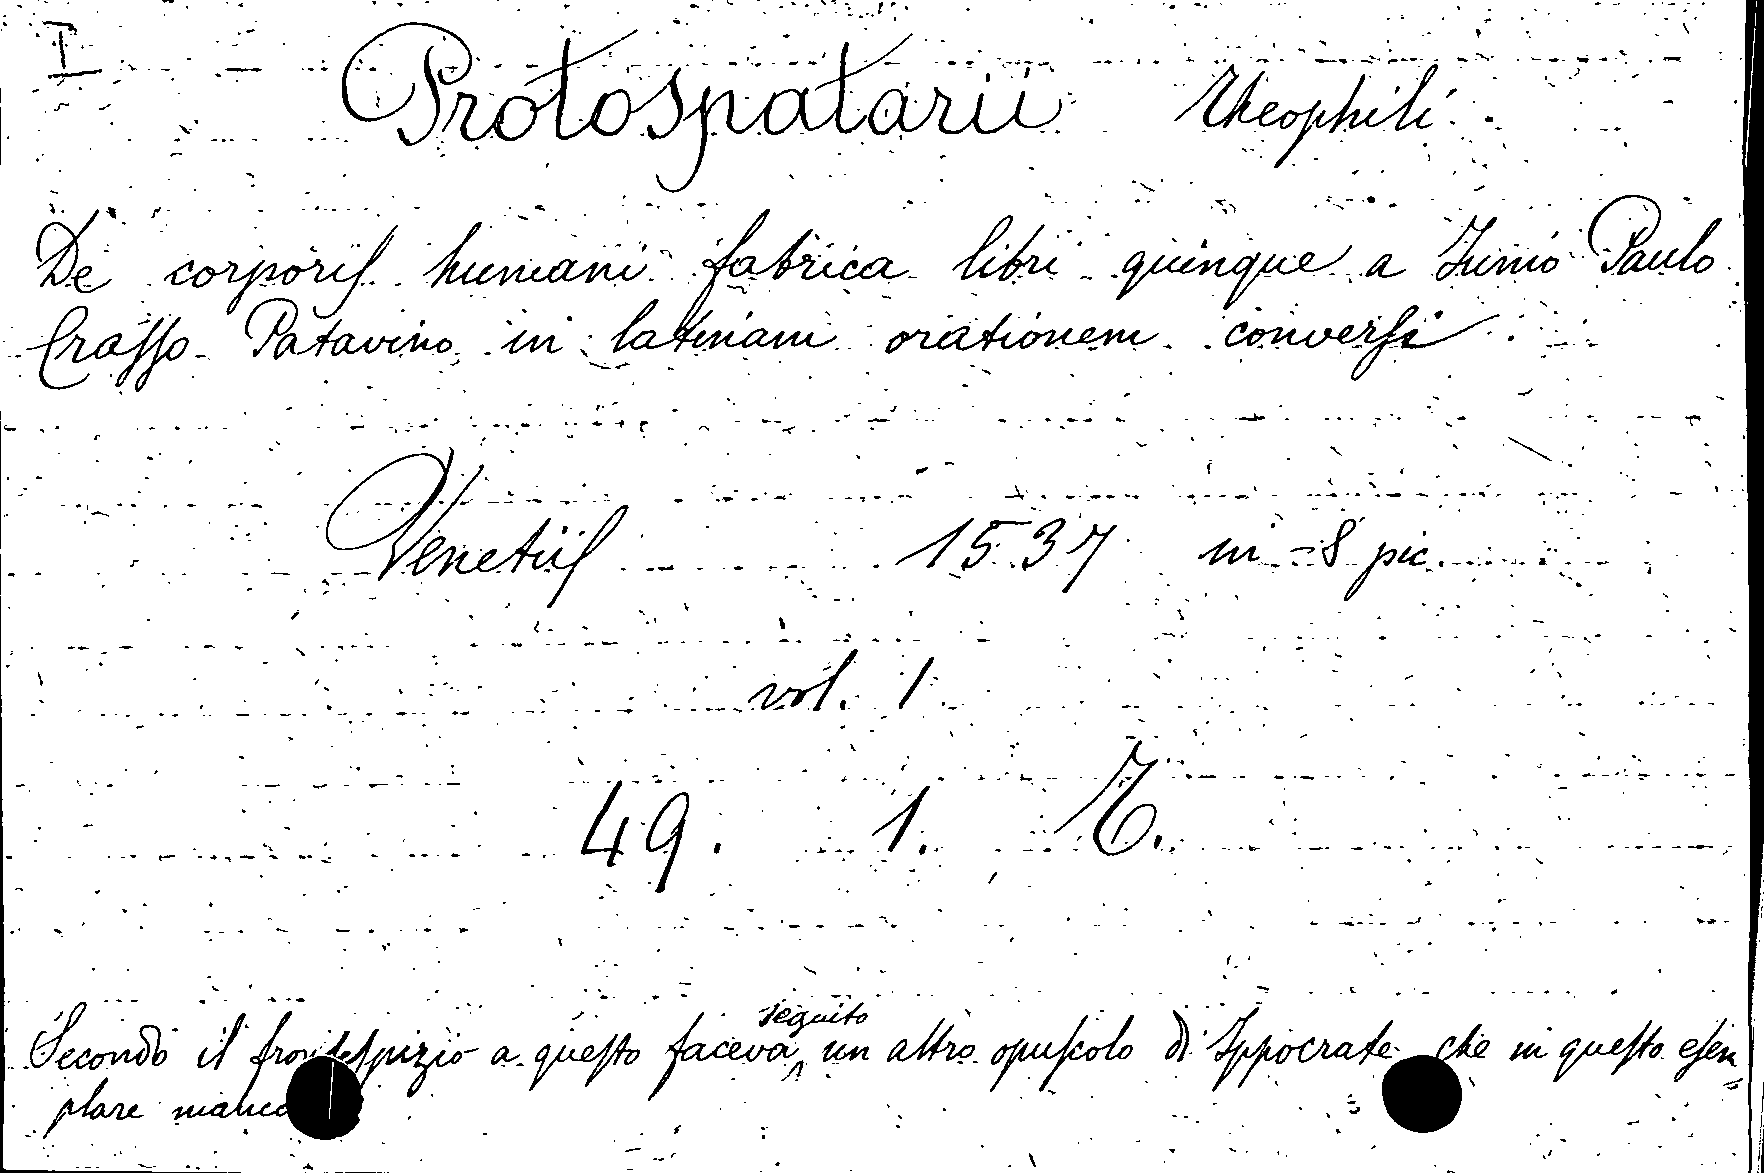 I
Protospatarii Theophili.
De corporis humani fabrica libri quinque a Junio Paulo
Crasso Patavino in latinam orationem conversi
Venetiis 1537 in-8 pic.
vol. 1.
49. 1. Z.
Secondo il frontespizio a questo faceva seguito un altro opuscolo di Ippocrate che in questo esem=
plare manca